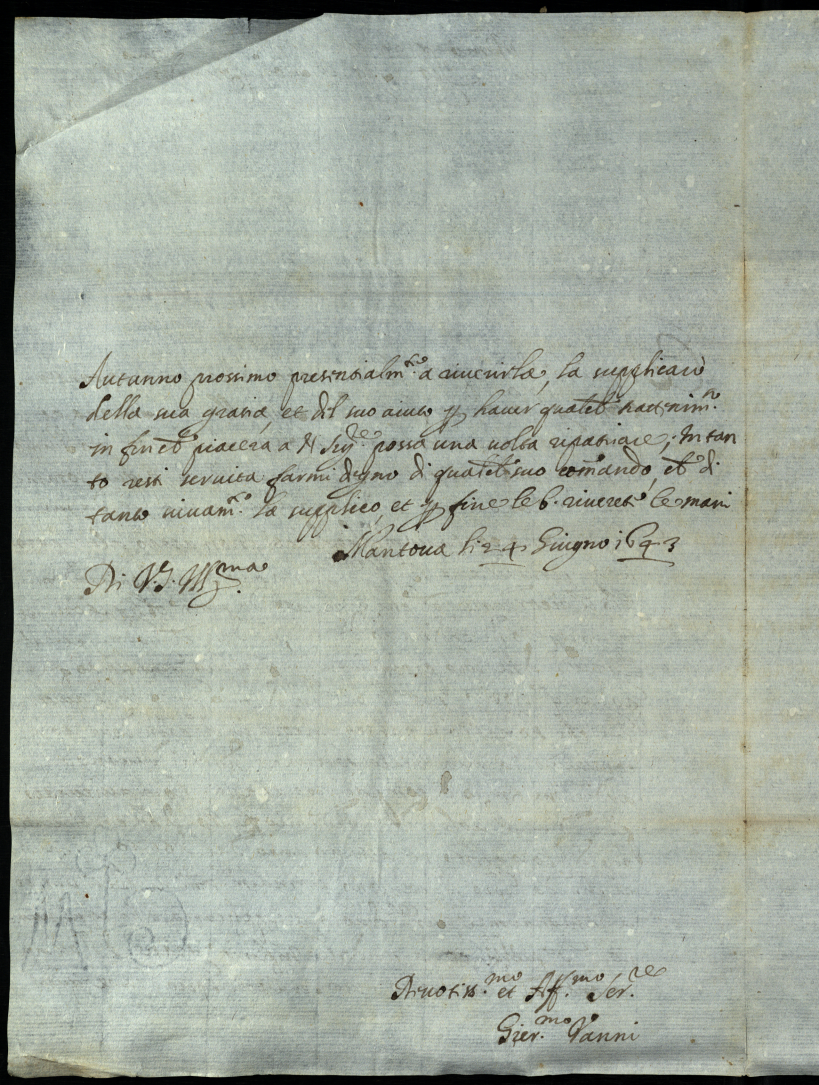 Autunno prossimo presentialm.te a riverirla, la supplicarò
della sua gratia, et del suo aiuto p haver qualch trattenim.to
in fin ch piacerà a N Sig.re possa una volta ripatriare; In tan
to resti servita farmi degno di qualch suo comando, ch di
tanto vivam.te la supplico et p fine le b. riverete le mani
Mantova li 24 Giugno 1643
Di V.S. Ill.ma
Divotiss.mo et Aff.mo Ser.re
Gier.mo Vanni